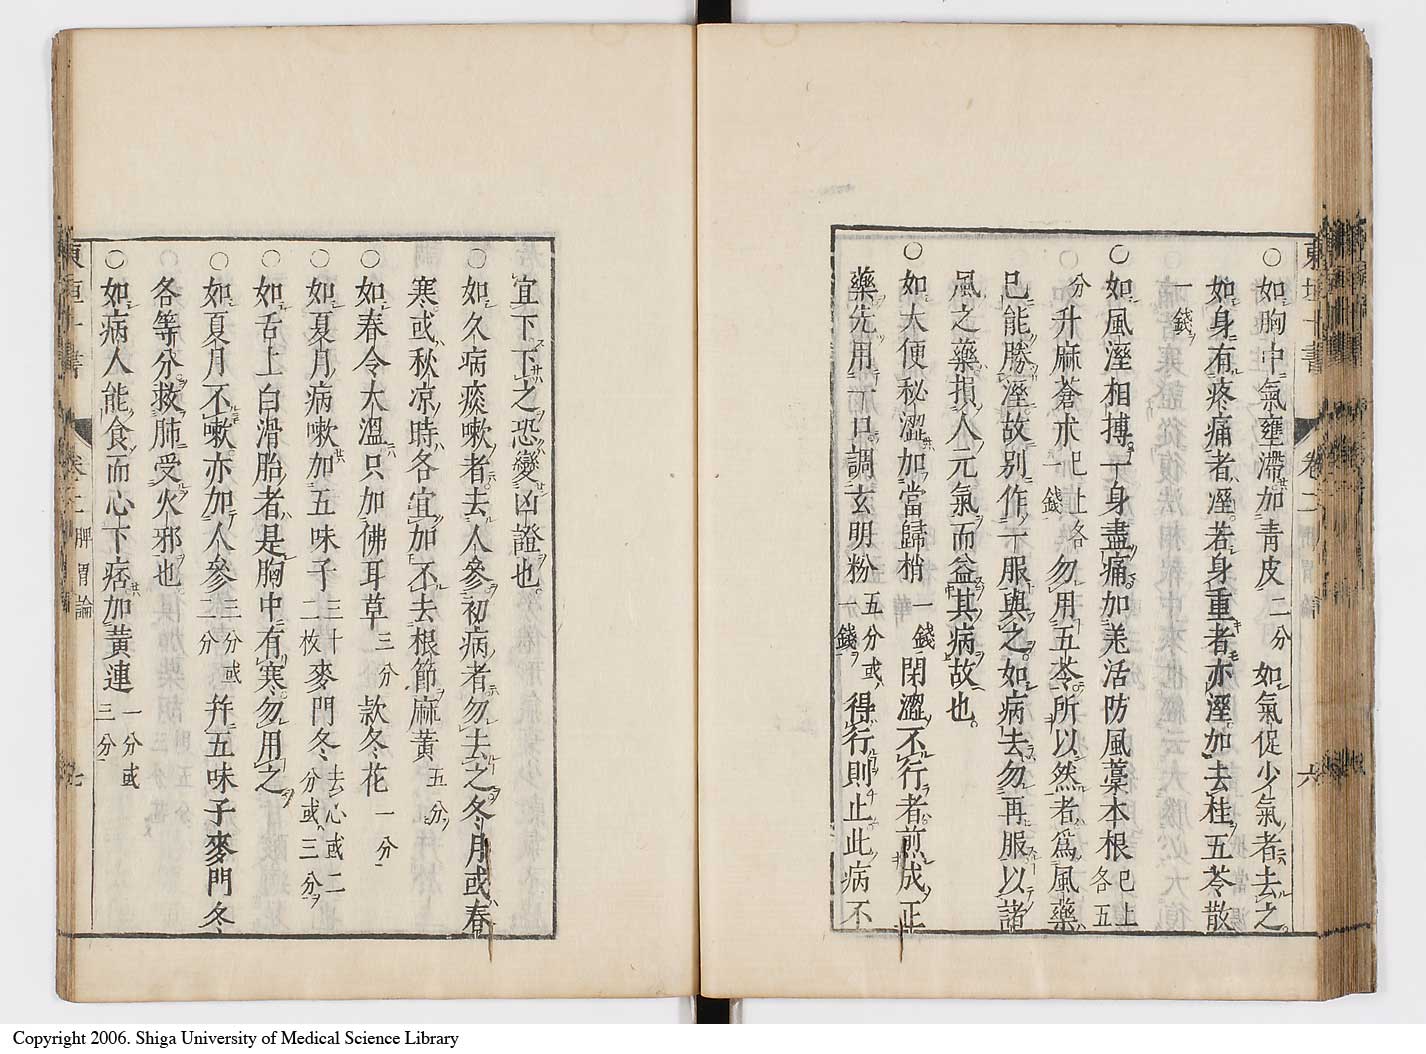 東垣十書
卷二
脾胃論
六
○如胸中氣壅滯加青皮二分如氣促少氣者去之
如身有疼痛者溼若身重者亦溼加去桂五苓散
一錢
○如風溼相搏一身盡痛加羌活防風藁本根已上各五
分升麻蒼朮已上各一錢勿用五苓所以然者爲風藥
已能勝溼故別作一服與之如病去勿再服以諸
風之藥損人元氣而益其病故也
○如大便秘澀加當歸梢一錢閉澀不行者煎成正
藥先用一口調玄明粉五分或一錢得行則止此病不
宜下下之恐變凶證也
○如久病痰嗽者去人參初病者勿去之冬月或春
寒或秋凉時各宜加不去根節麻黃五分
○如春令大溫只加佛耳草三分款冬花一分
○如夏月病嗽加五味子三十二枚麥門冬去心或二分或三分
○如舌上白滑胎者是胸中有寒勿用之
○如夏月不嗽亦加人參三分或二分幷五味子麥門冬
各等分救肺受火邪也
○如病人能食而心下痞加黃連一分或三分
東垣十書
卷二
脾胃論
七
Copyright 2006. Shiga University of Medical Science Library